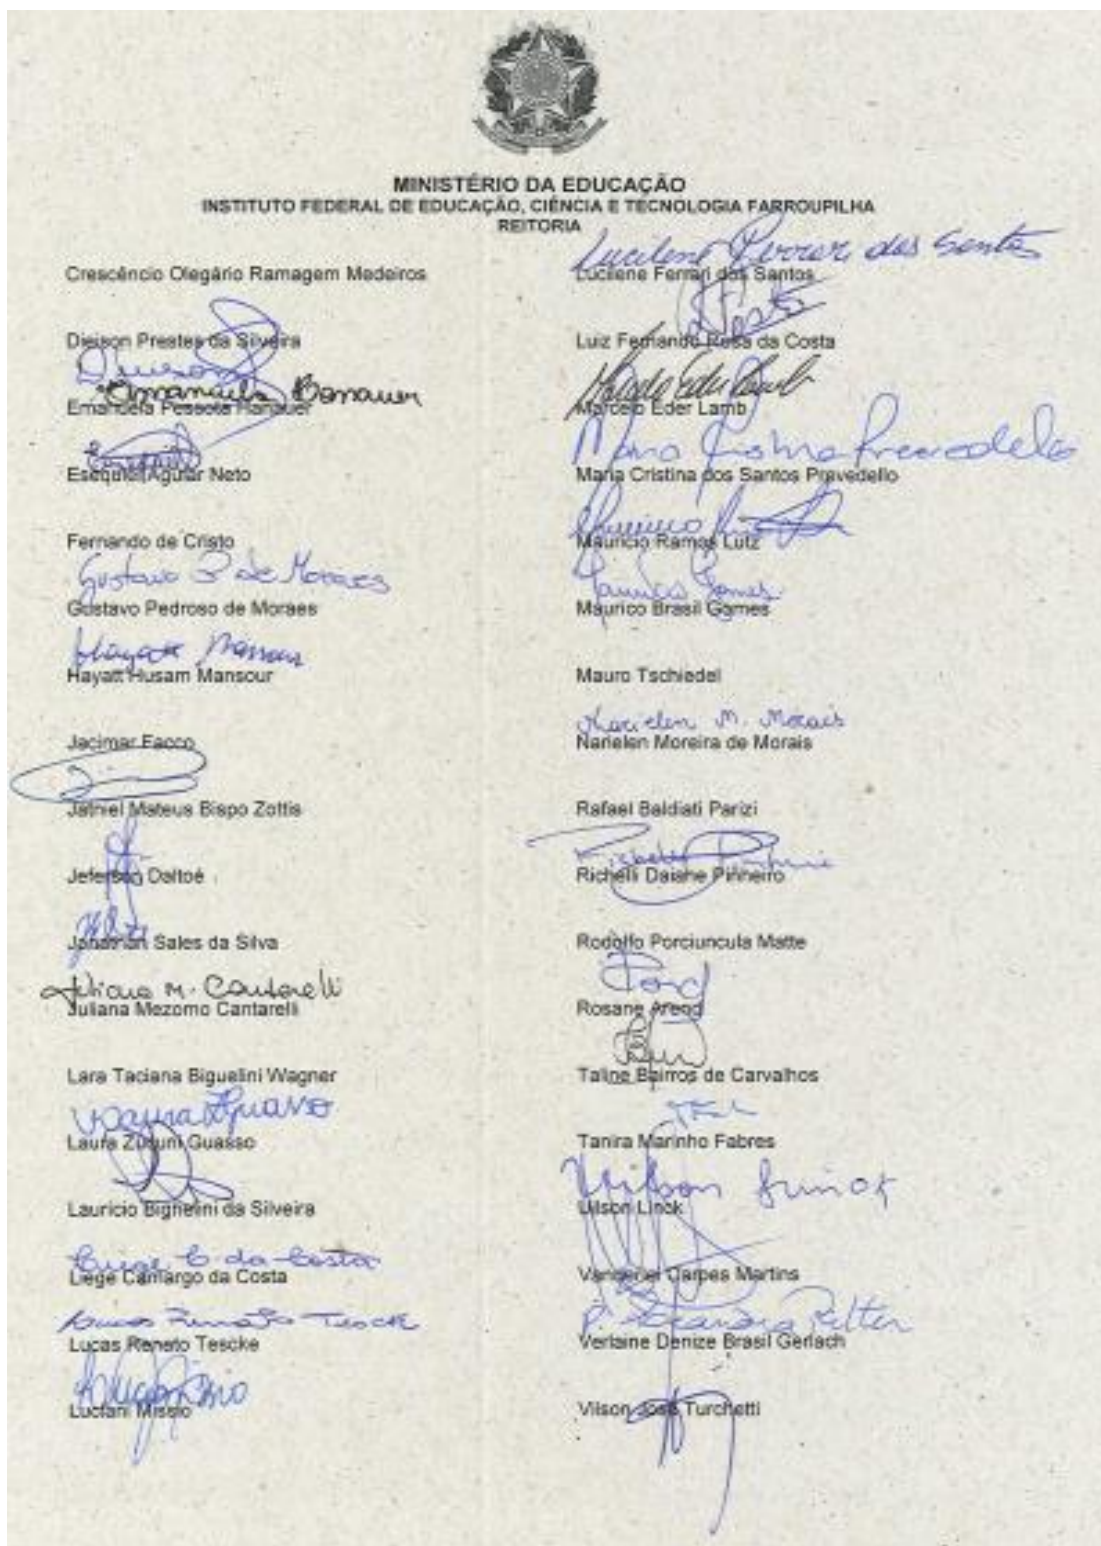 MINISTÉRIO DA EDUCAÇÃO
INSTITUTO FEDERAL DE EDUCAÇÃO, CIÊNCIA E TECNOLOGIA FARROUPILHA
REITORIA
Crescêncio Olegário Ramagem Medeiros
Dieison Prestes da Silveira
Emanuela Bonauer
Emanuela Pessota Hanauer
Esequiel Aguiar Neto
Fernando de Cristo
Gustavo P de Moraes
Gustavo Pedroso de Moraes
Hayatt Mansour
Hayatt Husam Mansour
Jacimar Facco
Jathiel Mateus Bispo Zottis
Jeferson Daltoé
Jonathan Sales da Silva
Juliana M. Cantarelli
Juliana Mezomo Cantarelli
Lara Taciana Biguelini Wagner
Laura Guasso
Laura Zukuni Guasso
Lauricio Bighelini da Silveira
Liege C. da Costa
Liege Camargo da Costa
Lucas Renato Tescke
Lucas Renato Tescke
Luciani Missio
Lucilene Ferrari dos Santos
Lucilene Ferrari dos Santos
Luiz Fernando Rosa da Costa
Marcelo Eder Lamb
Marcelo Eder Lamb
Maria Cristina Prevedello
Maria Cristina dos Santos Prevedello
Mauricio Ramos Lutz
Maurico Brasil Gomes
Mauro Tschiedel
Narielen M. Morais
Narielen Moreira de Morais
Rafael Baldiati Parizi
Richelli Daiane Pinheiro
Rodolfo Porciuncula Matte
Rosane Arend
Taline Bairros de Carvalhos
Tanira Marinho Fabres
Uilson Linck
Vanderlei Carpes Martins
Verlaine Denize Brasil Gerlach
Vilson José Turchetti